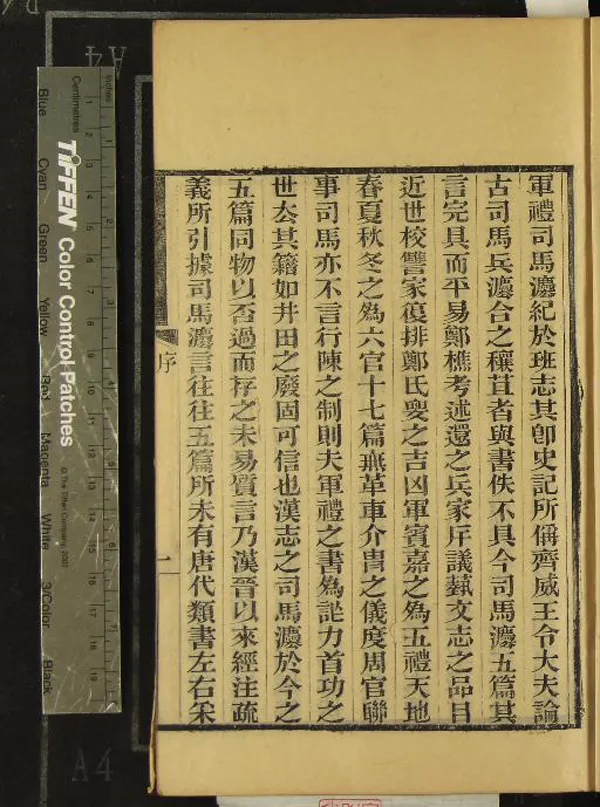 軍禮司馬灋紀於班志其卽史記所偁齊威王令大夫論
古司馬兵灋合之穰苴者與書佚不具今司馬灋五篇其
言完具而平易鄭樵考述還之兵家斥議蓺文志之品目
近世校讐家復排鄭氏之吉凶軍賓嘉之爲五禮天地
春夏秋冬之爲六官十七篇無革車介冑之儀度周官聯
事司馬亦不言行陳之制則夫軍禮之書爲力首功之
世厺其籍如井田之廢固可信也漢志之司馬灋於今之
五篇同物以否過而存之未易質言乃漢晉以來經注疏
義所引據司馬灋言往往五篇所未有唐代類書左右采
序 一
Inches 1 2 3 4 5 6 7
Centimetres 1 2 3 4 5 6 7 8 9 10 11 12 13 14 15 16 17 18 19
TIFFEN Color Control Patches © The Tiffen Company, 2007
Blue Cyan Green Yellow Red Magenta White 3/Color Black
A4
A4